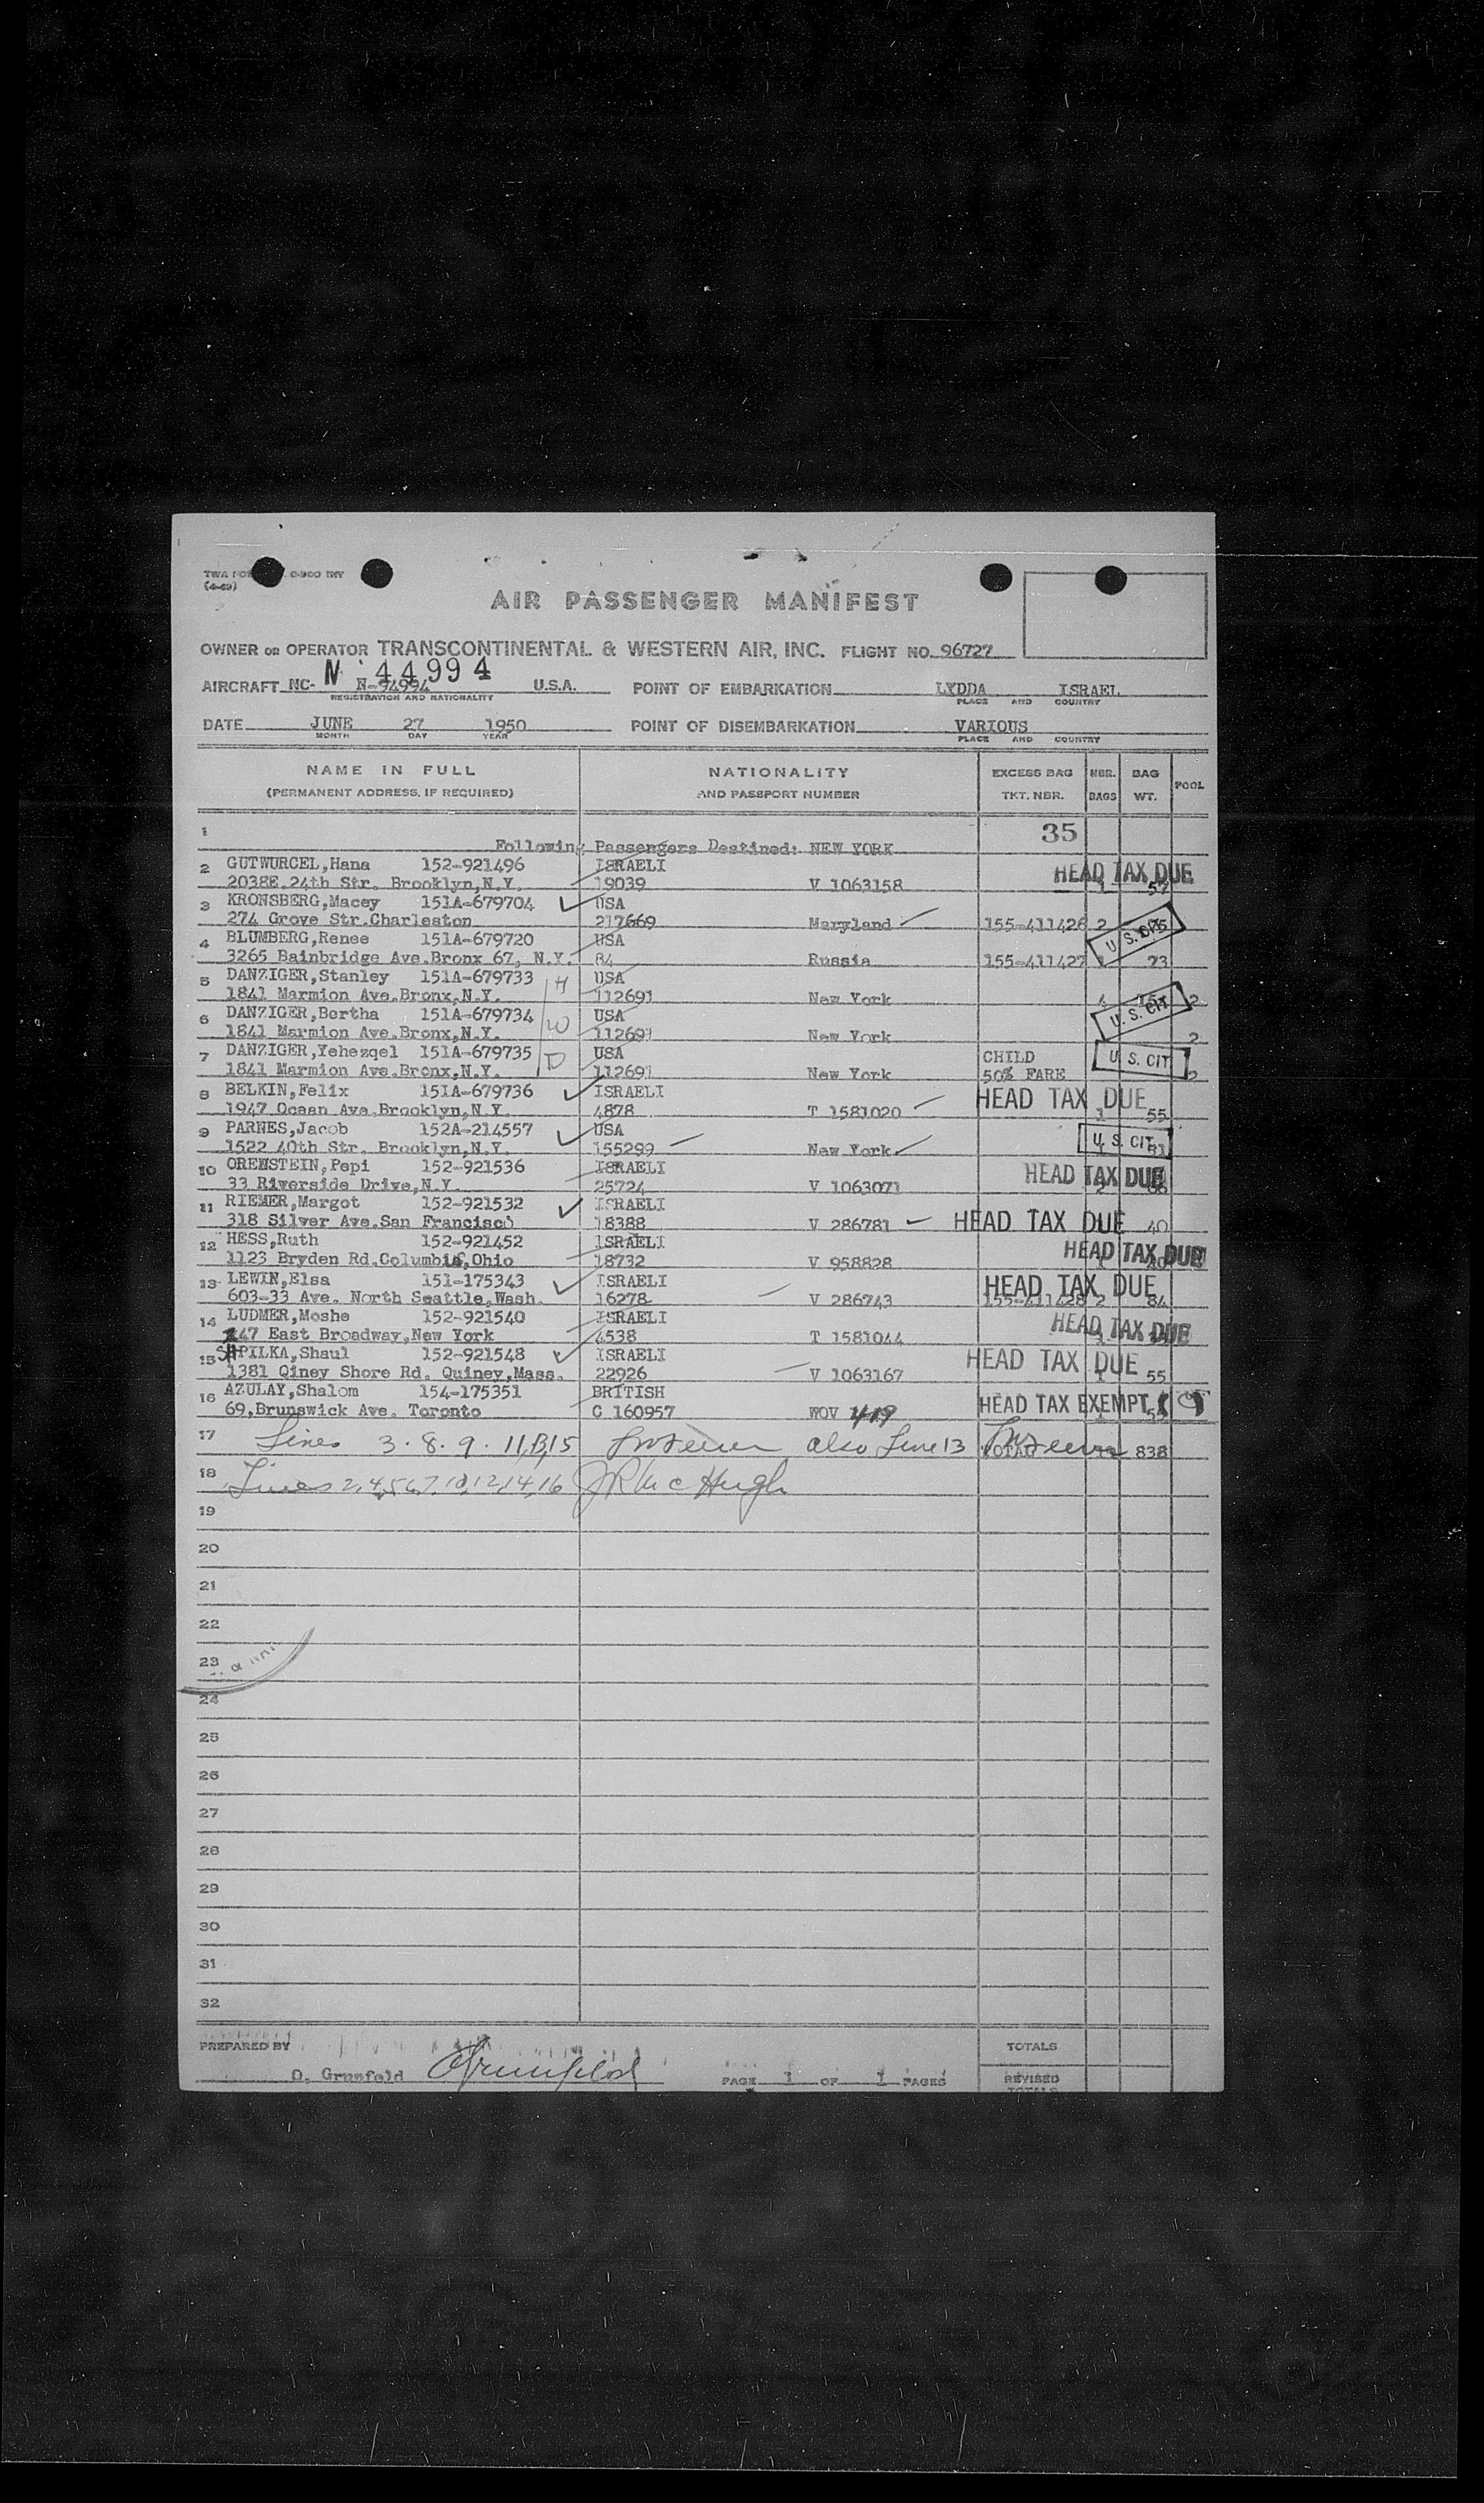 TWA FO 0-900 INY
(4-49)
AIR PASSENGER MANIFEST
OWNER OR OPERATOR TRANSCONTINENTAL & WESTERN AIR, INC. FLIGHT NO. 96727
N 44994
AIRCRAFT NC- N-94994 U.S.A. POINT OF EMBARKATION LYDDA ISRAEL
REGISTRATION AND NATIONALITY PLACE AND COUNTRY
DATE JUNE 27 1950 POINT OF DISEMBARKATION VARIOUS
MONTH DAY YEAR PLACE AND COUNTRY
NAME IN FULL NATIONALITY EXCESS BAG NBR. BAG POOL
(PERMANENT ADDRESS, IF REQUIRED) AND PASSPORT NUMBER TKT. NBR. BAGS WT.
1 35
Following Passengers Destined: NEW YORK
2 GUTWURCEL,Hana 152-921496 ISRAELI HEAD TAX DUE
2038E.24th Str. Brooklyn,N.Y. 19039 V 1063158
3 KRONSBERG,Macey 151A-679704 USA
274 Grove Str.Charleston 217669 Maryland 155-411426 2 U. S. CIT
4 BLUMBERG,Renee 151A-679720 USA
3265 Bainbridge Ave.Bronx 67, N.Y. 84 Russia 155-411427 23
5 DANZIGER,Stanley 151A-679733 H USA
1841 Marmion Ave.Bronx,N.Y. 112691 New York 4 U. S. CIT 2
6 DANZIGER,Bertha 151A-679734 W USA
1841 Marmion Ave.Bronx,N.Y. 112691 New York 2
7 DANZIGER,Yehezqel 151A-679735 D USA CHILD U. S. CIT
1841 Marmion Ave.Bronx,N.Y. 112691 New York 50% FARE 2
8 BELKIN,Felix 151A-679736 ISRAELI HEAD TAX DUE
1947 Ocean Ave.Brooklyn,N.Y. 4878 T 1581020 1 55
9 PARNES,Jacob 152A-214557 USA U. S. CIT
1522 40th Str. Brooklyn,N.Y. 155299 New York
10 ORENSTEIN,Pepi 152-921536 ISRAELI HEAD TAX DUE
33 Riverside Drive,N.Y. 25724 V 1063071 2
11 RIEMER,Margot 152-921532 ISRAELI
318 Silver Ave.San Francisco 18388 V 286781 HEAD TAX DUE 40
12 HESS,Ruth 152-921452 ISRAELI HEAD TAX DUE
1123 Bryden Rd.Columbus,Ohio 18732 V 958828
13 LEWIN,Elsa 151-175343 ISRAELI HEAD TAX DUE
603-33 Ave. North Seattle,Wash. 16278 V 286743 155-411428 2 84
14 LUDMER,Moshe 152-921540 ISRAELI HEAD TAX DUE
247 East Broadway,New York 4538 T 1581044
15 SHPILKA,Shaul 152-921548 ISRAELI HEAD TAX DUE
1381 Qiney Shore Rd. Quiney,Mass. 22926 V 1063167 55
16 AZULAY,Shalom 154-175351 BRITISH HEAD TAX EXEMPT
69,Brunswick Ave. Toronto C 160957 WOV 419
17 Lines 3. 8. 9. 11,13,15 also Line 13 TOTAL 838
18 Lines 2,4,5,6,7,10,12,14,16 JR McHugh
19
20
21
22
23
24
25
26
27
28
29
30
31
32
PREPARED BY TOTALS
O. Grunfeld OGrunfeld PAGE 1 OF 1 PAGES REVISED
TOTALS